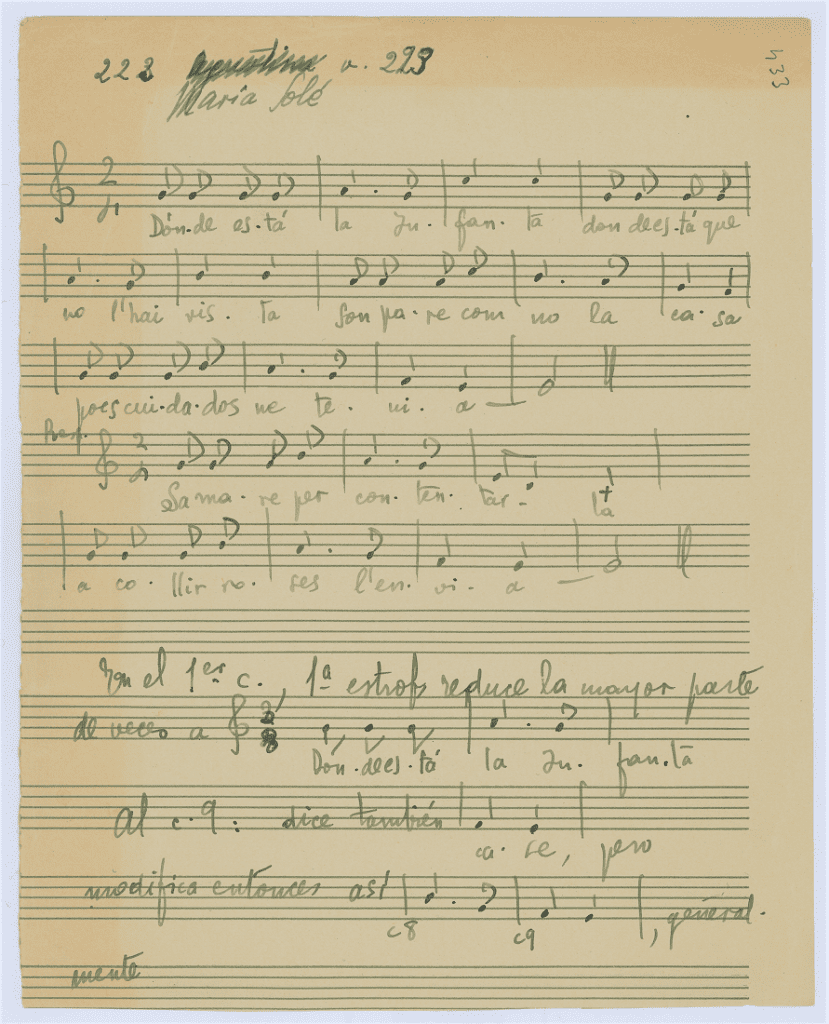 223 Agustina v. 223
433
María Solé
Dón-de es-tá la In-fan-ta don dees-tá que
no l'hai vis-ta son pa-re com no la ca-sa
poes cui-da-dos ne te-ni-a
Resp.
Sa ma-re per con-ten-tar-la
a co-llir ro-ses l'en-vi-a
En el 1er c., 1ª estrofa reduce la mayor parte
de veces a
Dón-dees-tá la In-fan-ta
Al c. 9: dice también
ca-se, pero
modifica entonces así
c8 c9 , general-
mente